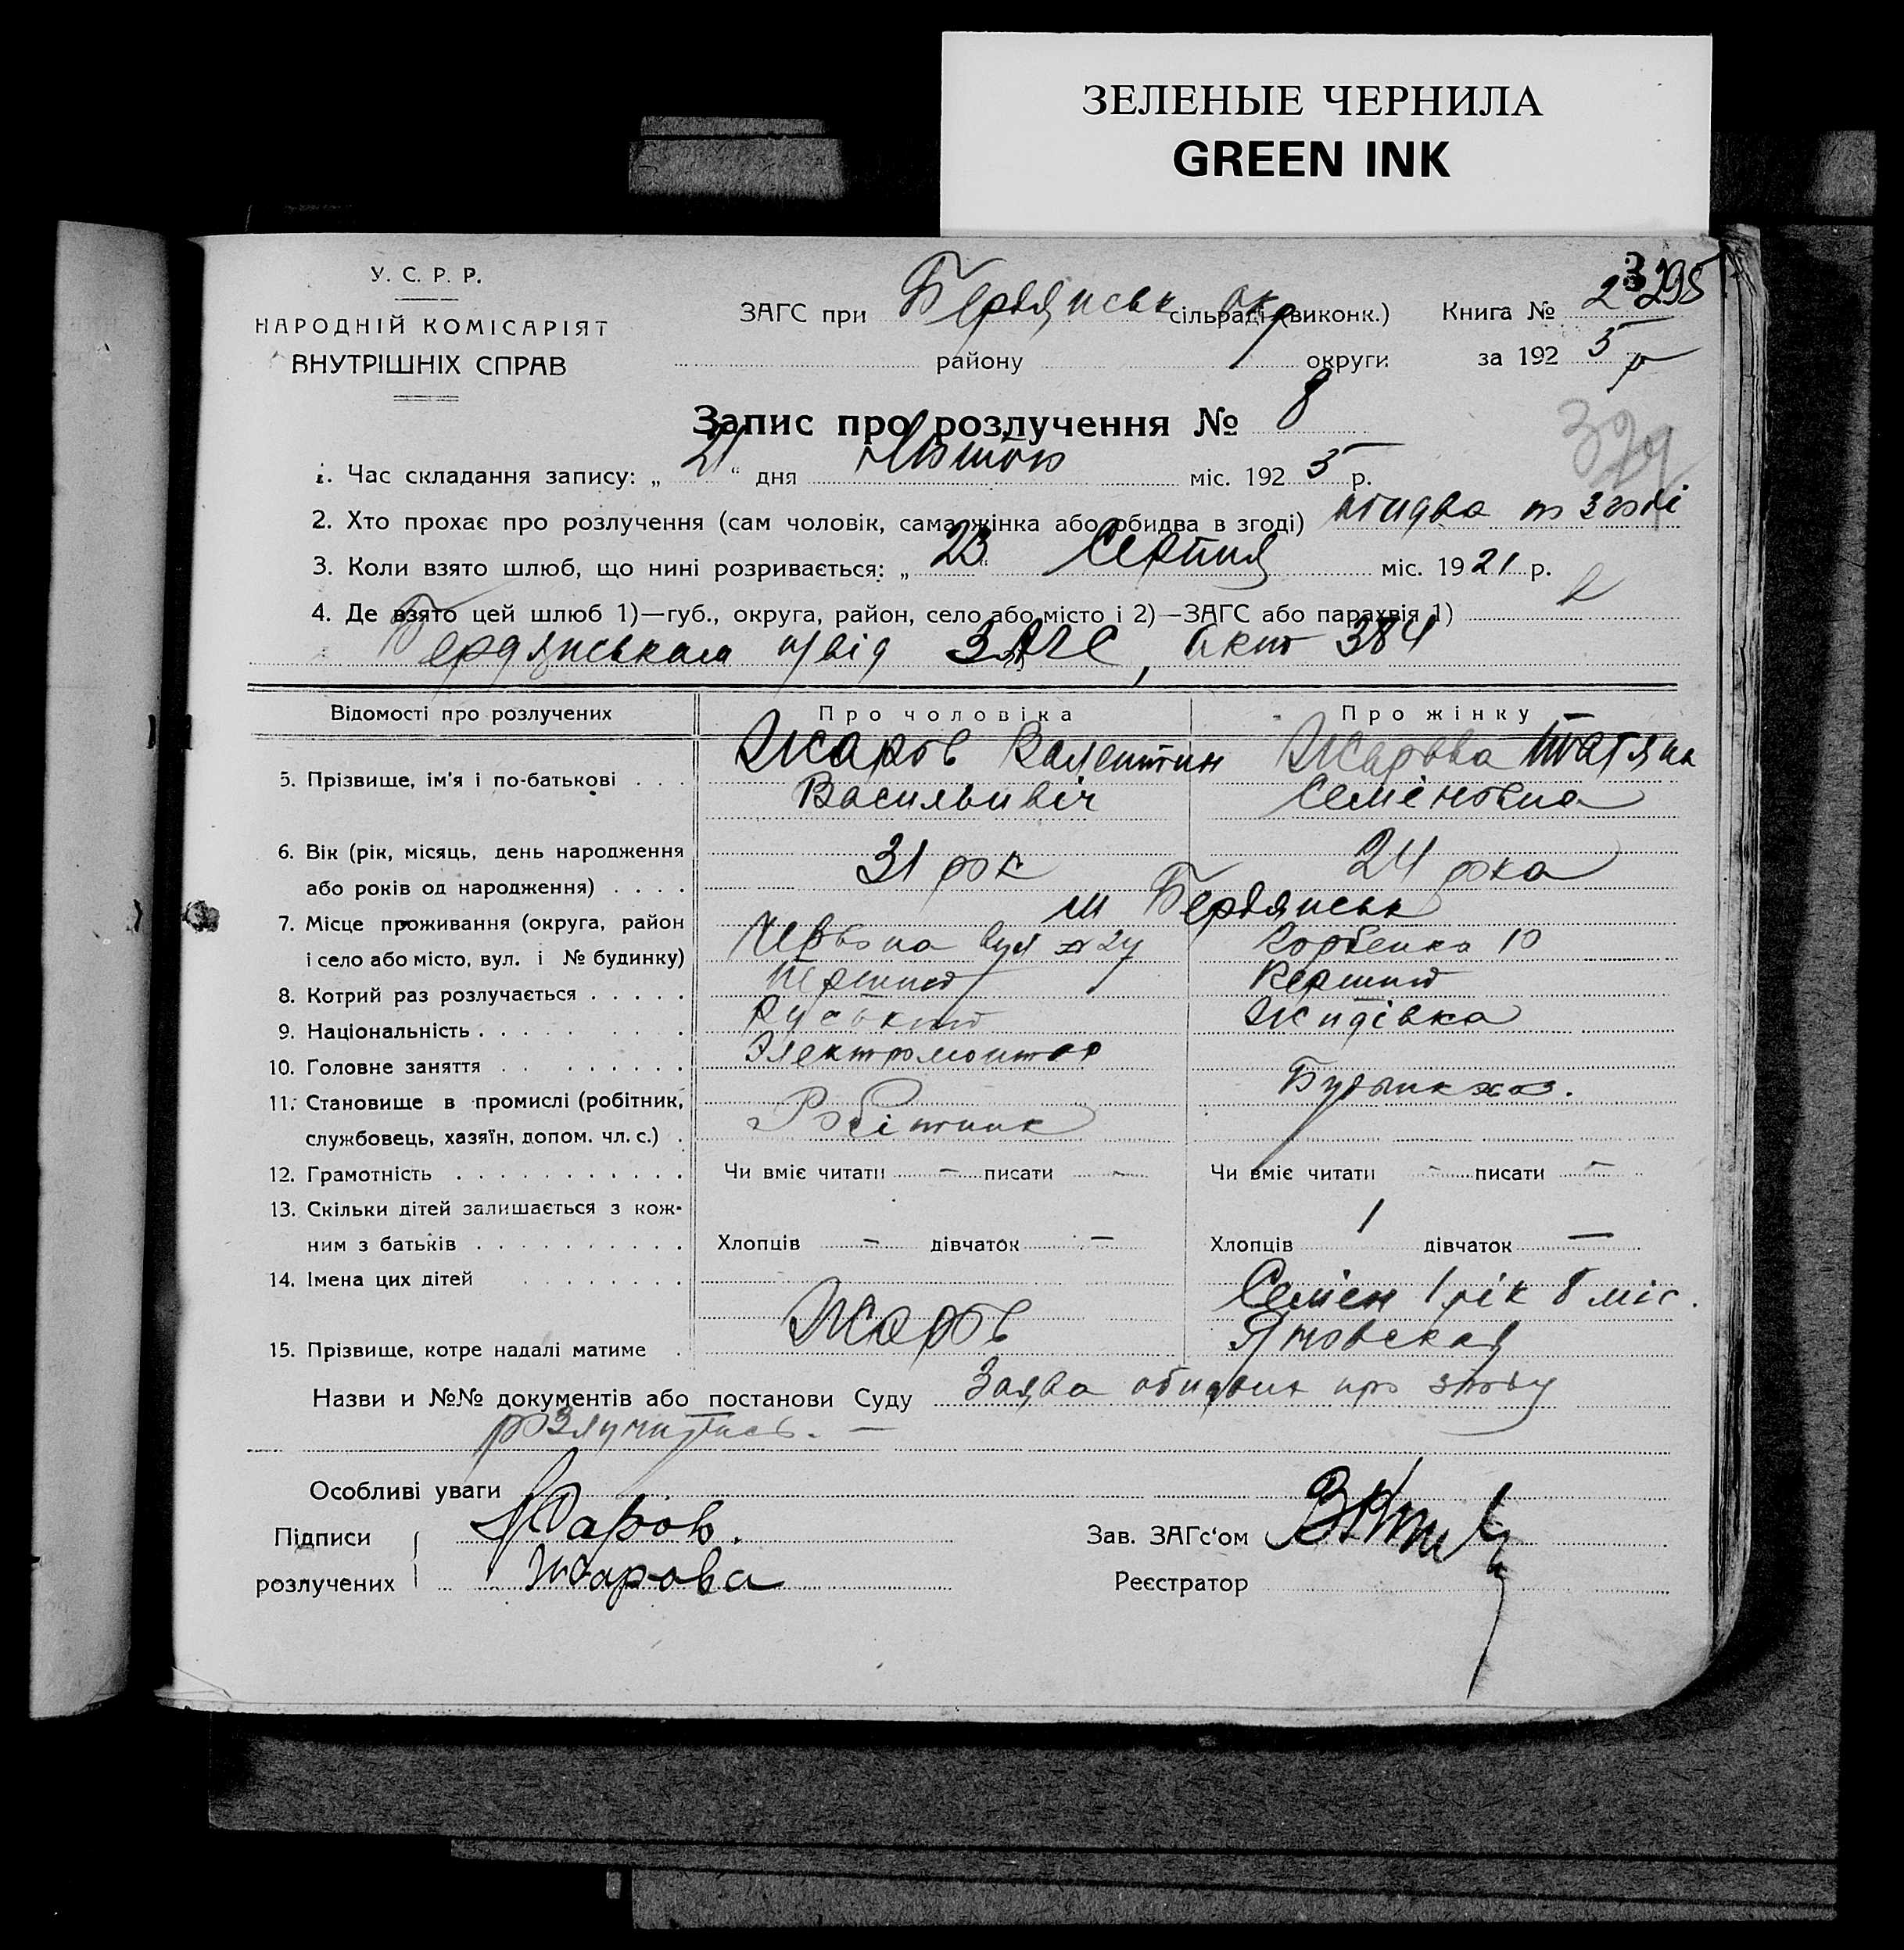 ЗЕЛЕНЫЕ ЧЕРНИЛА
GREEN INK
У. С. Р. Р.
НАРОДНІЙ КОМІСАРІЯТ
ВНУТРІШНІХ СПРАВ
ЗАГС при Бердянськ окр сільраді (виконк.)
району округи
Книга № 2
3295
за 192 5 р
Запис про розлучення № 8
329
1. Час складання запису: „ 21 “ дня Лютого міс. 192 5 р.
2. Хто прохає про розлучення (сам чоловік, сама жінка або обидва в згоді) обидва по згоді
3. Коли взято шлюб, що нині розривається: „ 23 “ Серпня міс. 19 21 р.
4. Де взято цей шлюб 1)—губ., округа, район, село або місто і 2)—ЗАГС або парахвія 1) в
Бердянськом п/від ЗАГС, акт 384
Відомості про розлучених Про чоловіка Про жінку
5. Прізвище, ім'я і по-батькові . . . Жаров Валентин Жарова Татяна
Васильивіч Семеновна
6. Вік (рік, місяць, день народження
або років од народження) . . . . 31 рок 24 рока
7. Місце проживання (округа, район м Бердянськ
і село або місто, вул. і № будинку) Червона вул № 24 Горбенко 10
8. Котрий раз розлучається . . . . . Першио Першио
9. Національність . . . Руський Жидівка
10. Головне заняття . . . Электромонтор
11. Становище в промислі (робітник, Будинк хоз.
службовець, хазяїн, допом. чл. с.) . Робітник
12. Грамотність . . . Чи вміє читати – писати – Чи вміє читати – писати –
13. Скільки дітей залишається з кож-
ним з батьків . . . Хлопців – дівчаток – Хлопців 1 дівчаток –
14. Імена цих дітей . . . Семен 1 рік 8 міс.
15. Прізвище, котре надалі матиме . Жаров Яновская
Назви и №№ документів або постанови Суду Заява обидвих про згоду
розлучитись. –
Особливі уваги
Підписи Жаров. Зав. ЗАГс'ом
розлучених Жарова Реєстратор